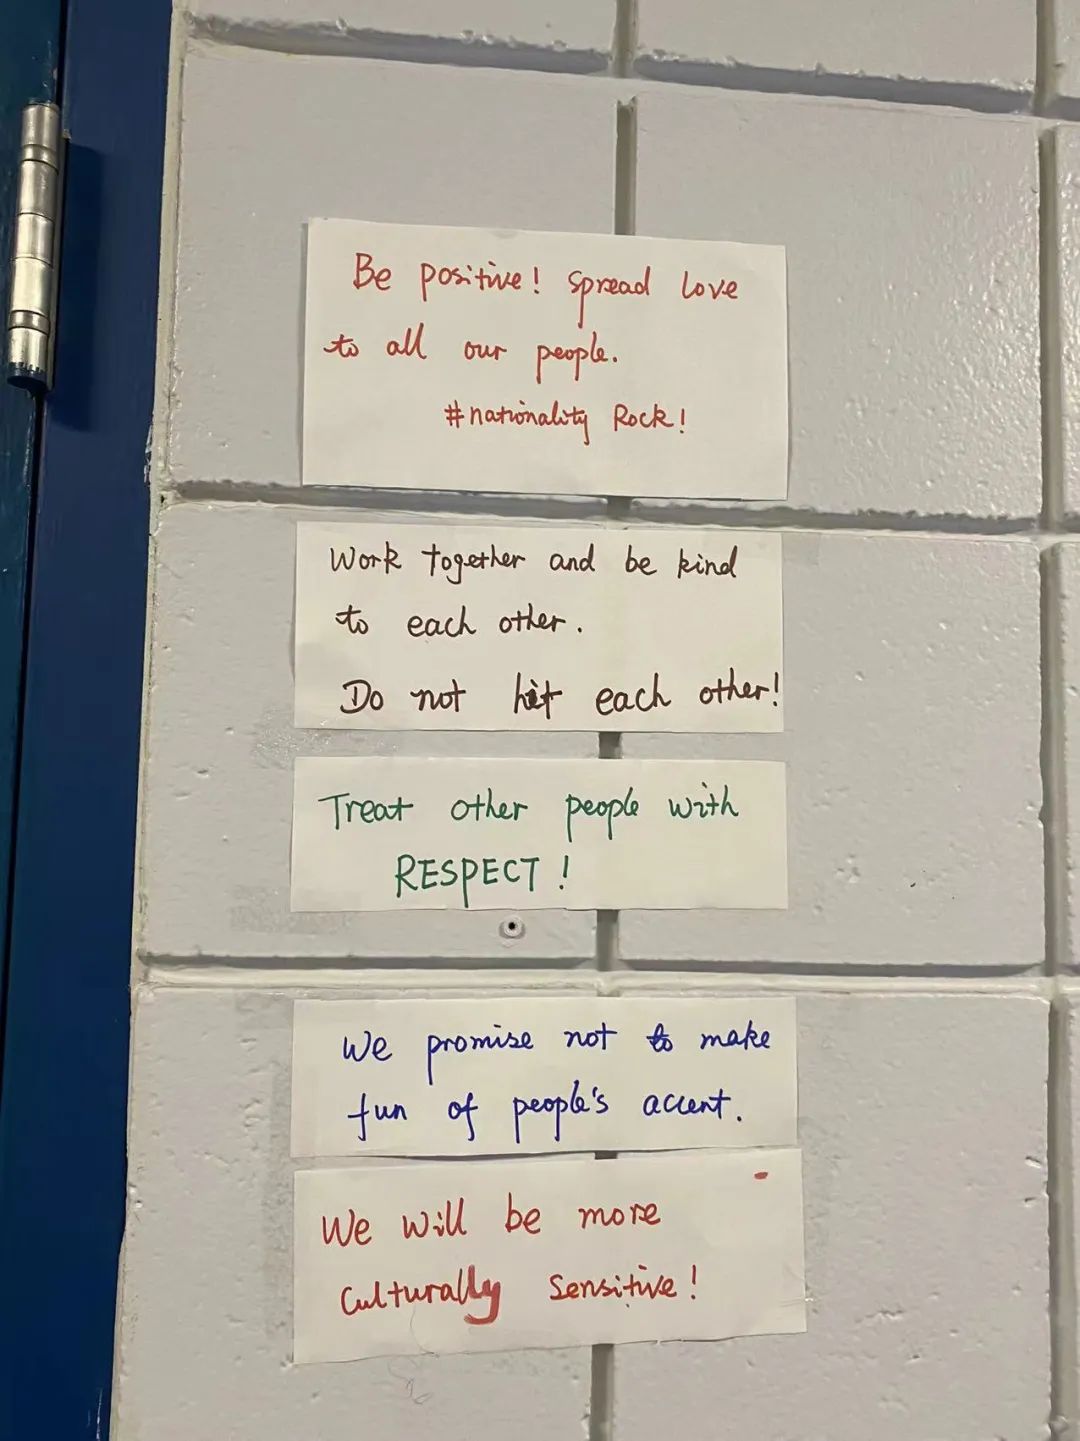 Be positive! spread love
to all our people.
#nationality Rock!
Work together and be kind
to each other.
Do not hit each other!
Treat other people with
RESPECT!
We promise not to make
fun of people's accent.
We will be more
Culturally Sensitive!